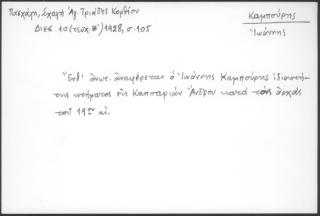 Πασχάλη, Σχολή Ἁγ. Τριάδος Κορθίου
ΔΙΕΕ 10 (τεῦχ. Β') 1928, σ. 105
Καμπούρης
Ἰωάννης
Ἐνθ' ἀνωτ. ἀναφέρεται ὁ Ἰωάννης Καμπούρης ἰδιοκτή-
της κτήματος εἰς Καππαριάν Ἄνδρου κατά τάς ἀρχάς
τοῦ 19ου αἰ.